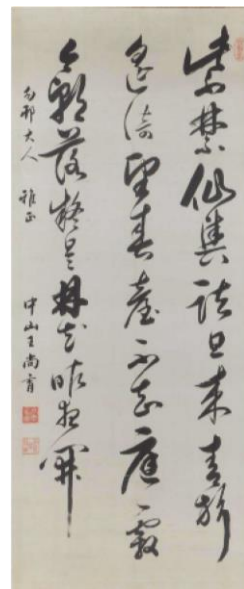 紫禁仙輿詰旦來青旂
遙倚望春臺不知庭霰
今朝落疑是林花昨夜開
邦大人 雅正 中山王尚育